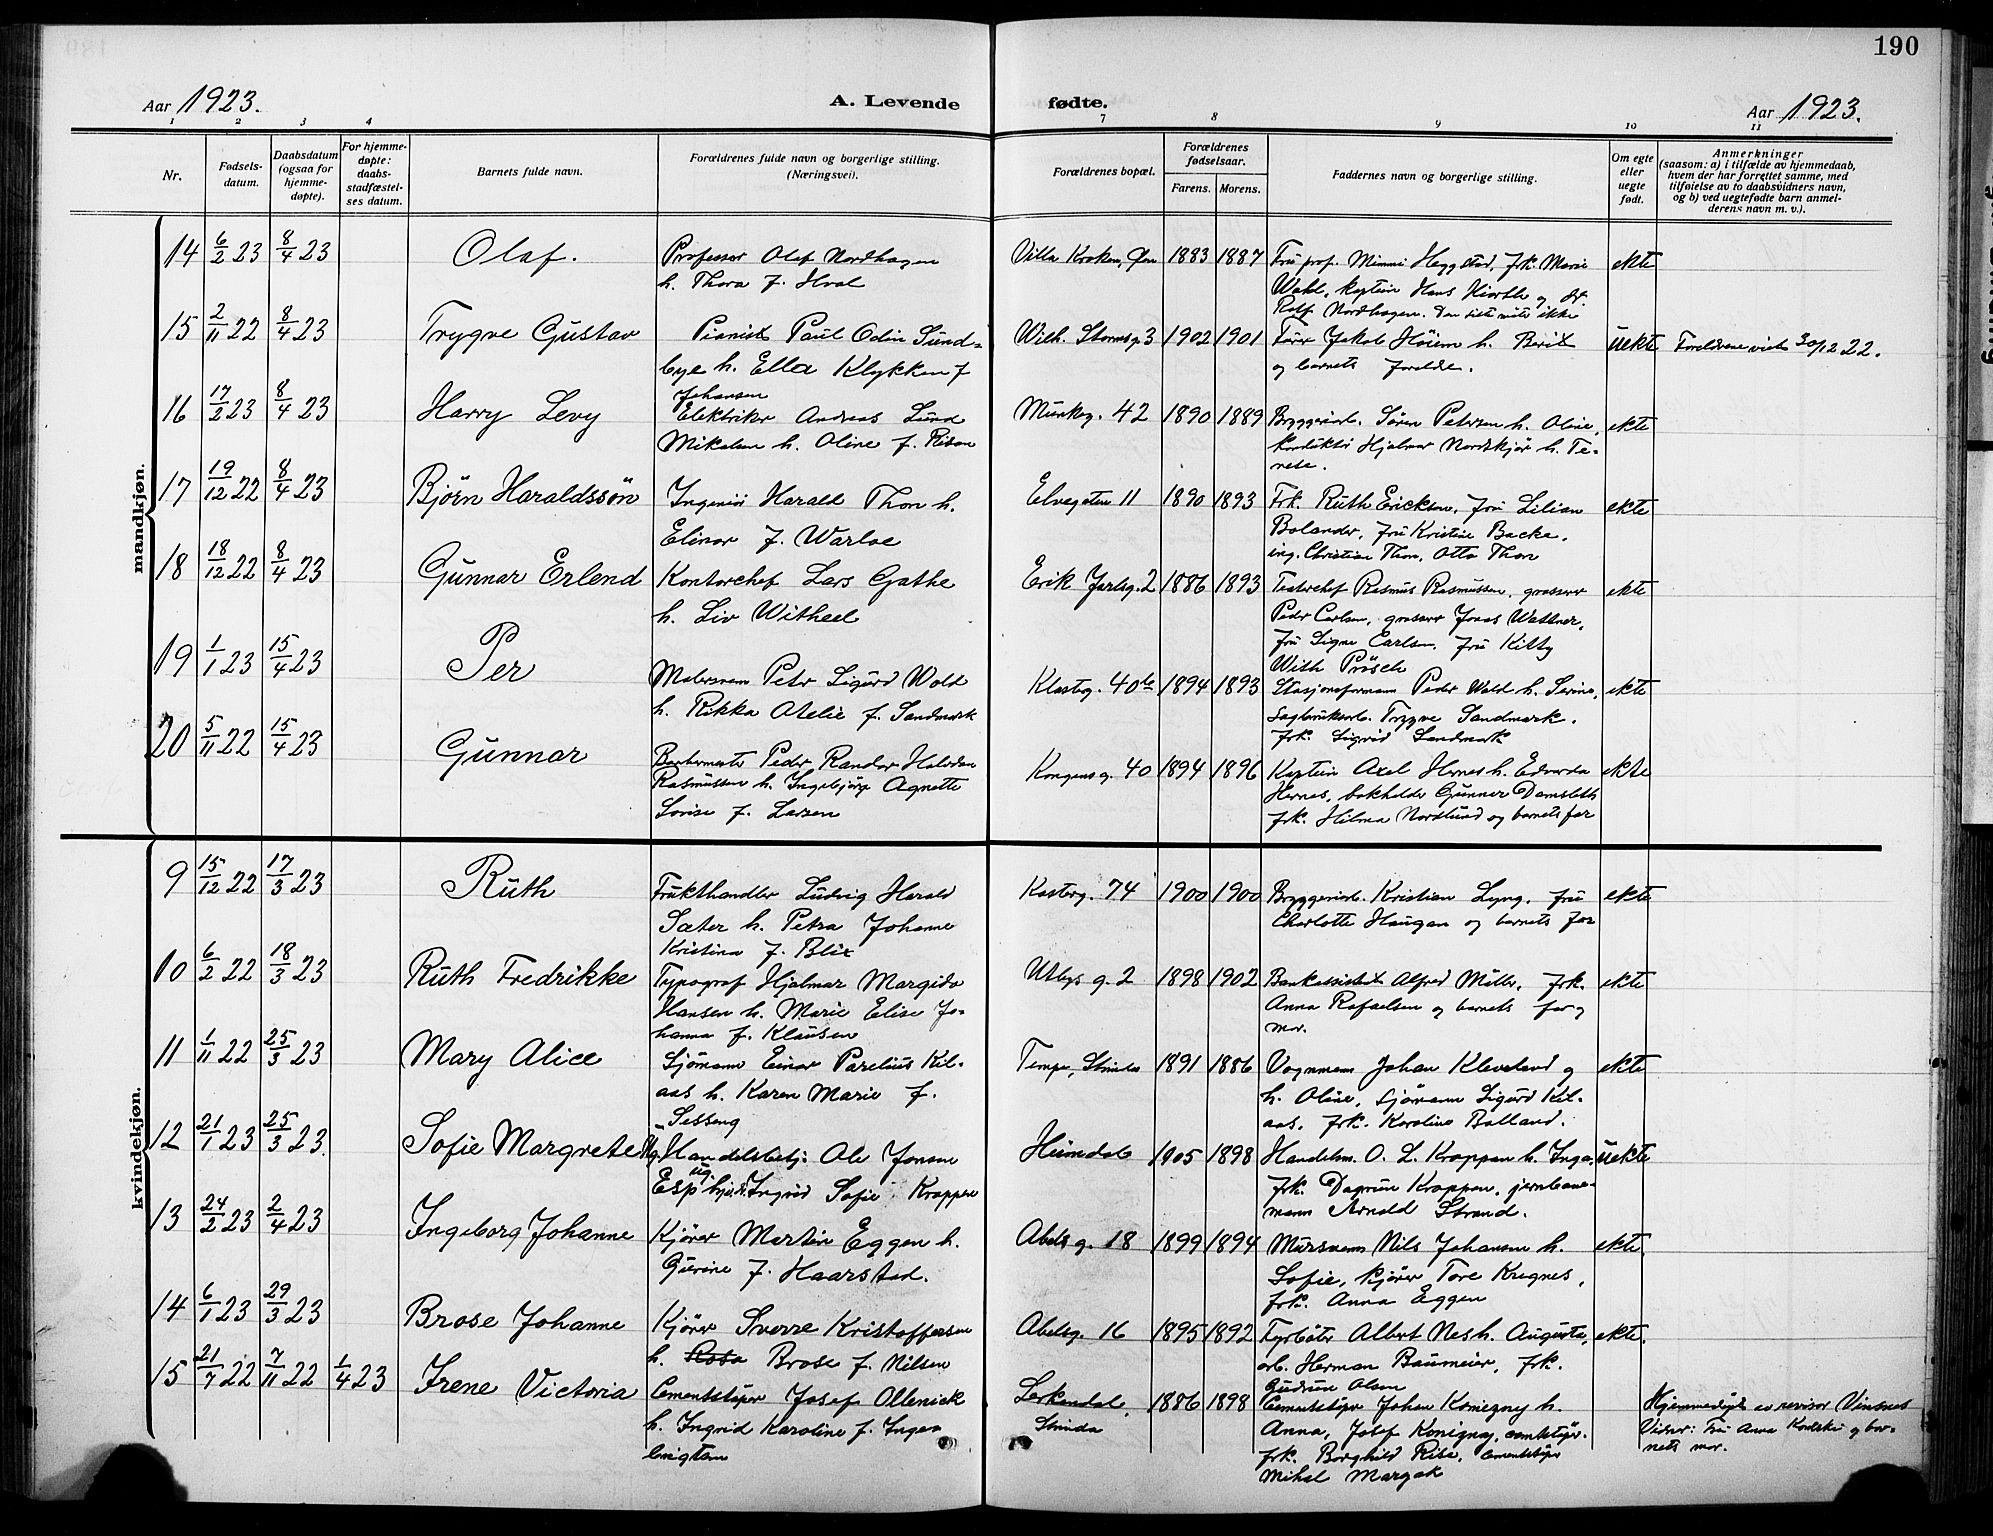 190
Aar 1923.
A. Levende
fødte.
Aar 1923.
1 2 3 4 7 8 9 10 11
Nr.
Fødsels-
datum.
Daabsdatum
(ogsaa for
hjemme-
døpte).
For hjemme-
døpte:
daabs-
stadfæstel-
ses datum.
Barnets fulde navn.
Forældrenes fulde navn og borgerlige stilling.
(Næringsvei).
Forældrenes bopæl.
Forældrenes
fødselsaar.
Farens. Morens.
Faddernes navn og borgerlige stilling.
Om egte
eller
uegte
født.
Anmerkninger
(saasom: a) i tilfælde av hjemmedaab,
hvem der har forrettet samme, med
tilføielse av to daabsvidners navn,
og b) ved uegtefødte barn anmel-
derens navn m. v.).
mandkjøn.
14 6/2 23 8/4 23 Olaf.
Professor Olaf Nordhagen
h. Thora f. Hval
Villa Kroken, 1883 1887
Fru prof. Mimmi Heggstad, frk. Marie
Wahl, kaptein Hans Hiorth og
Rolf Nordhagen. Den siste møtte ikke
ekte
15 2/11 22 8/4 23 Trygve Gustav
Pianist Paul Odin Sund-
bye h. Ella Klykken f.
Johansen
Wilh. Stormsg. 3 1902 1901
Jakob Høiem h. Berit
og barnets foreldre.
uekte
Foreldrene viet 30/12 22.
16 17/2 23 8/4 23 Harry Levy
Elektriker Andreas Lund
Mikalsen h. Oline f. Risan
Munkeg. 42 1890 1889
Bryggeriarb. Søren Petersen h. Oline,
konduktør Hjalmar Nordskjør h. Te-
rese.
ekte
17 19/12 22 8/4 23 Bjørn Haraldssøn
Ingeniør Harald Thon h.
Elinor f. Warloe
Elvegaten 11 1890 1893
Frk. Ruth Ericksen, fru Lilian
Bolander, fru Kristine Backe,
ing. Christian Thon, Otto Thon
ekte
18 18/12 22 8/4 23 Gunnar Erlend
Kontorchef Lars Gathe
h. Liv Witheel
Erik Jarlsg. 2 1886 1893
Teaterchef Rasmus Rasmussen, grosserer
Peder Carlsen, grosserer Jonas Wattner,
fru Signe Carlsen, fru Kitty
With Prösch
ekte
19 1/1 23 15/4 23 Per
Malersvenn Peter Sigurd Wold
h. Rikka Otelie f. Sandmark
Klosterg. 40b 1894 1893
Stasjonsformann Peder Wold h. Serine,
sagbruksarb. Trygve Sandmark,
frk. Sigrid Sandmark
ekte
20 5/11 22 15/4 23 Gunnar
Barbermester Peder Randor Halvdan
Rasmussen h. Ingebjørg Agnette
Lovise f. Larsen
Kongensg. 40 1894 1896
Kaptein Axel Hernes h. Edvarda
Hernes, bokholder Gunnar Damsleth
frk. Hilma Nordlund og barnets far
ekte
kvindekjøn.
9 15/12 22 17/3 23 Ruth
Frukthandler Ludvig Harald
Sæter h. Petra Johanne
Kristina f. Blix
74 1900 1900
Bryggeriarb. Kristian Lyng, fru
Charlotte Haugan og barnets far
ekte
10 6/2 22 18/3 23 Ruth Fredrikke
Typograf Hjalmar Margido
Hansen h. Marie Elise Jo-
hanna f. Klausen
Utbys g. 2 1898 1902
Bankassistent Alfred Møller, frk.
Anna Rafaelsen og barnets far og
mor.
ekte
11 1/11 22 25/3 23 Mary Alice
Sjømann Einar Parelius Kil-
aas h. Karen Marie f.
Sesseng
Tempe, Strinda 1891 1886
Vognmann Johan Kleveland og
h. Oline, sjømann Sigurd Kil-
aas, frk. Karoline Balland.
ekte
12 21/1 23 25/3 23. Sofie Margrete
Handelsbetj. Ole Jonsen
Esp og Ingrid Sofie Kroppen
Heimdal 1905 1898
Handelsm. O. L. Kroppen h. Inga,
frk. Dagrun Kroppen, jernbane-
mann Arnold Strand.
uekte
13 24/2 23 2/4 23 Ingeborg Johanne
Kjører Martin Eggen h.
Gurine f. Haarstad.
Abels g. 18 1899 1894
Mursvenn Nils Johansen h.
Sofie, kjører Tore Krognes,
frk. Anna Eggen
ekte.
14 6/1 23 29/3 23 Brose Johanne
Kjører Sverre Kristoffersen
h. Rosa Brose f. Nilsen
Abelsg. 16 1895 1892
Fyrbøter Albert Nes h. Augusta,
arb. Herman Baumeier, frk.
Gudrun Olsen
ekte.
15 21/7 22 7/11 22 1/4 23 Irene Victoria
Cementstøper Josef Ollenick
h. Ingrid Karoline f. Inge-
brigtsen
Lerkendal,
Strinda
1886 1898
Cementstøper Johan Koniezny h.
Anna, Josef Koniezny, cementstøper,
frk. Borghild Rise, cementstøper
Mikal Margok
Hjemmedøpt av revisor Vinsnes
Vidner: Fru Anna og bar-
nets mor.